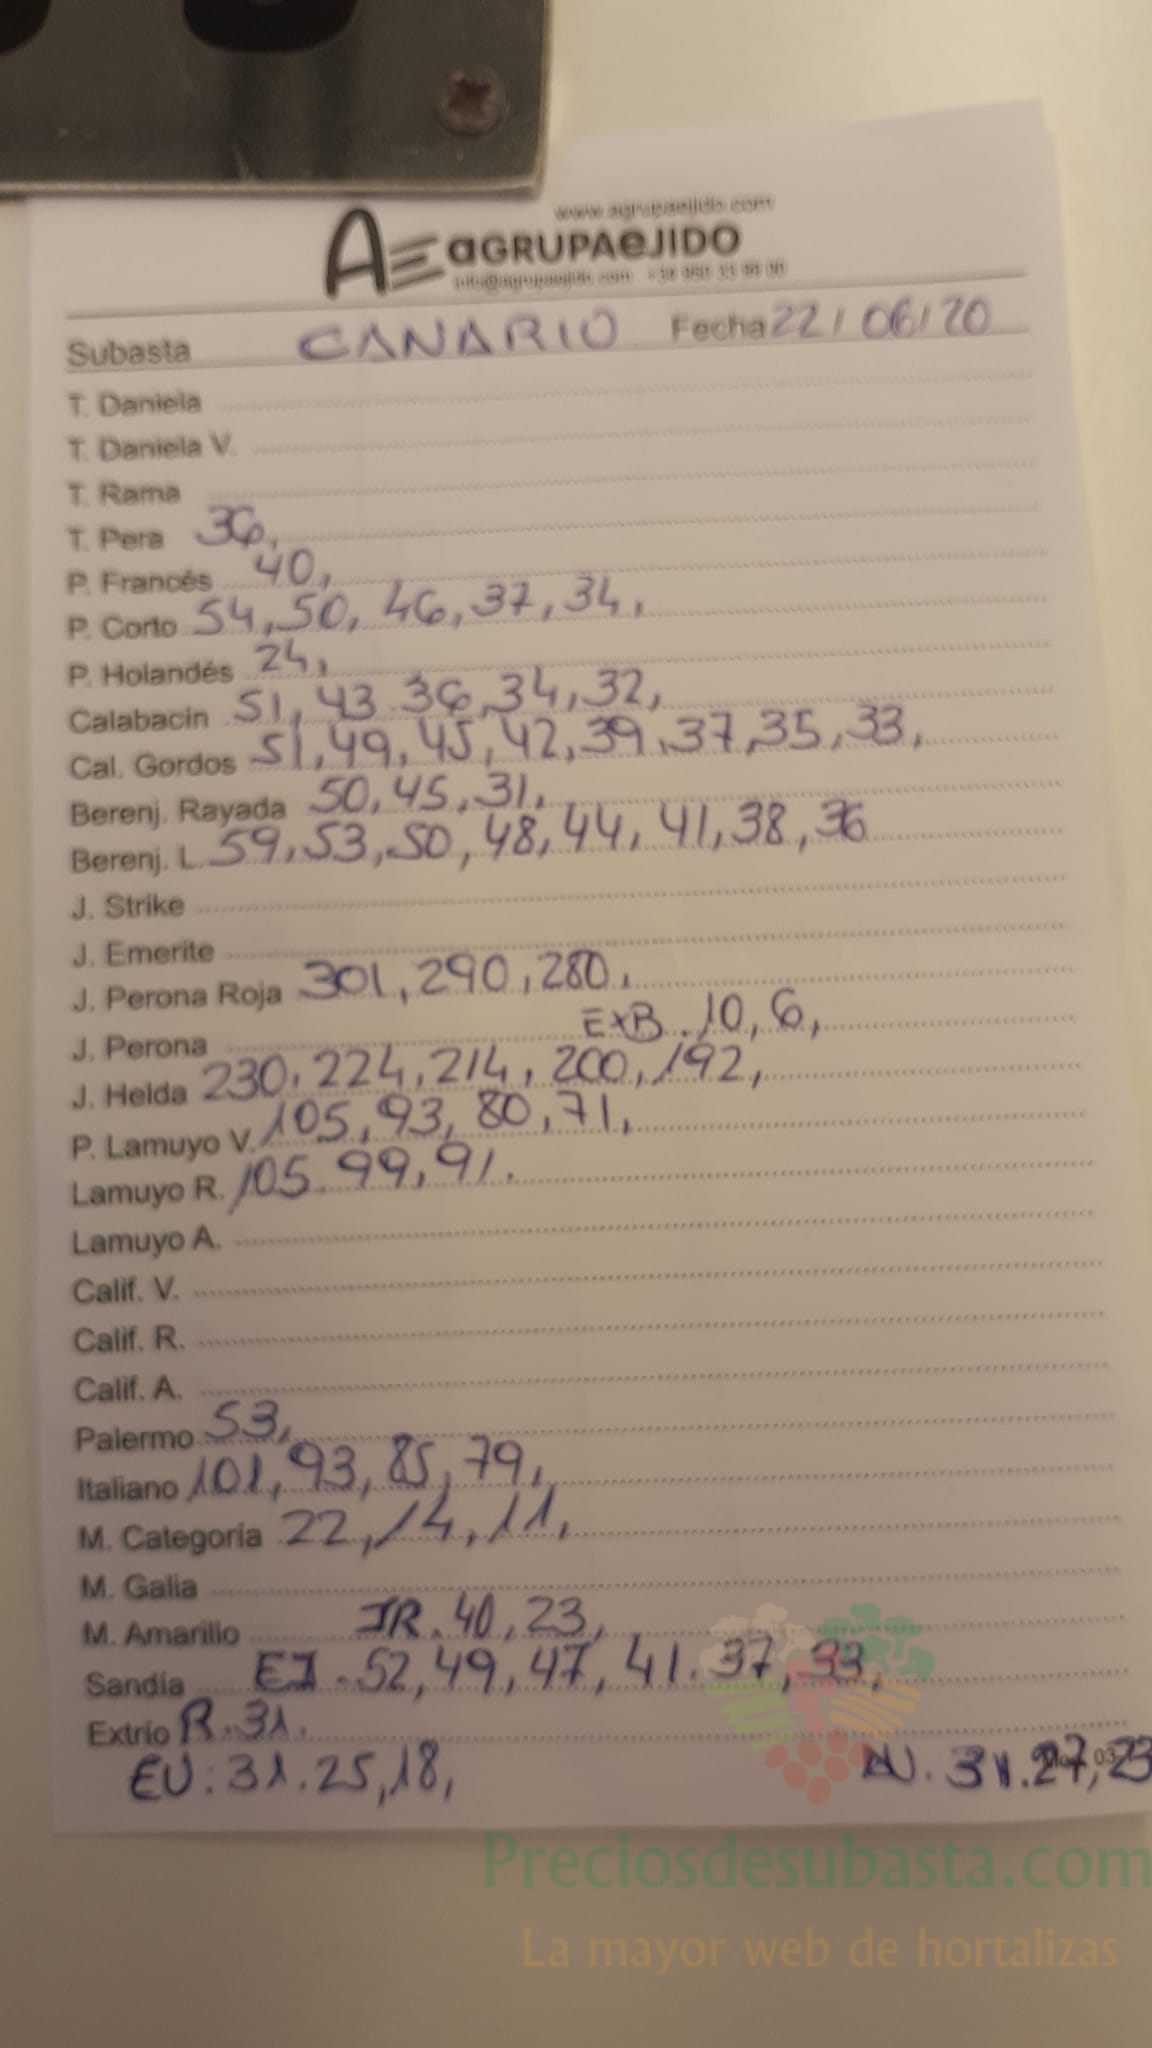 www.agrupaejido.com
AE aGRUPAeJIDO
info@agrupaejido.com
Subasta CANARIO Fecha 22/06/20
T. Daniela
T. Daniela V.
T. Rama
T. Pera 36,
P. Francés 40,
P. Corto 54,50, 46,37,34,
P. Holandés 24,
Calabacín 51,43.36,34,32,
Cal. Gordos 51,49,45,42,39,37,35,33,
Berenj. Rayada 50,45,31,
Berenj. L. 59,53,50,48,44,41,38,36
J. Strike
J. Emerite
J. Perona Roja 301,290,280,
J. Perona ExB. 10, 6,
J. Helda 230,224,214,200,192,
P. Lamuyo V. 105,93,80,71,
Lamuyo R. 105.99,91.
Lamuyo A.
Calif. V.
Calif. R.
Calif. A.
Palermo 53,
Italiano 101,93,85,79,
M. Categoría 22,14,11,
M. Galia
M. Amarillo JR.40,23,
Sandía EJ.52,49,47,41.37,33,
Extrio R.31.
EU:31.25,18, 31.27,23
Preciosdesubasta.com
La mayor web de hortalizas